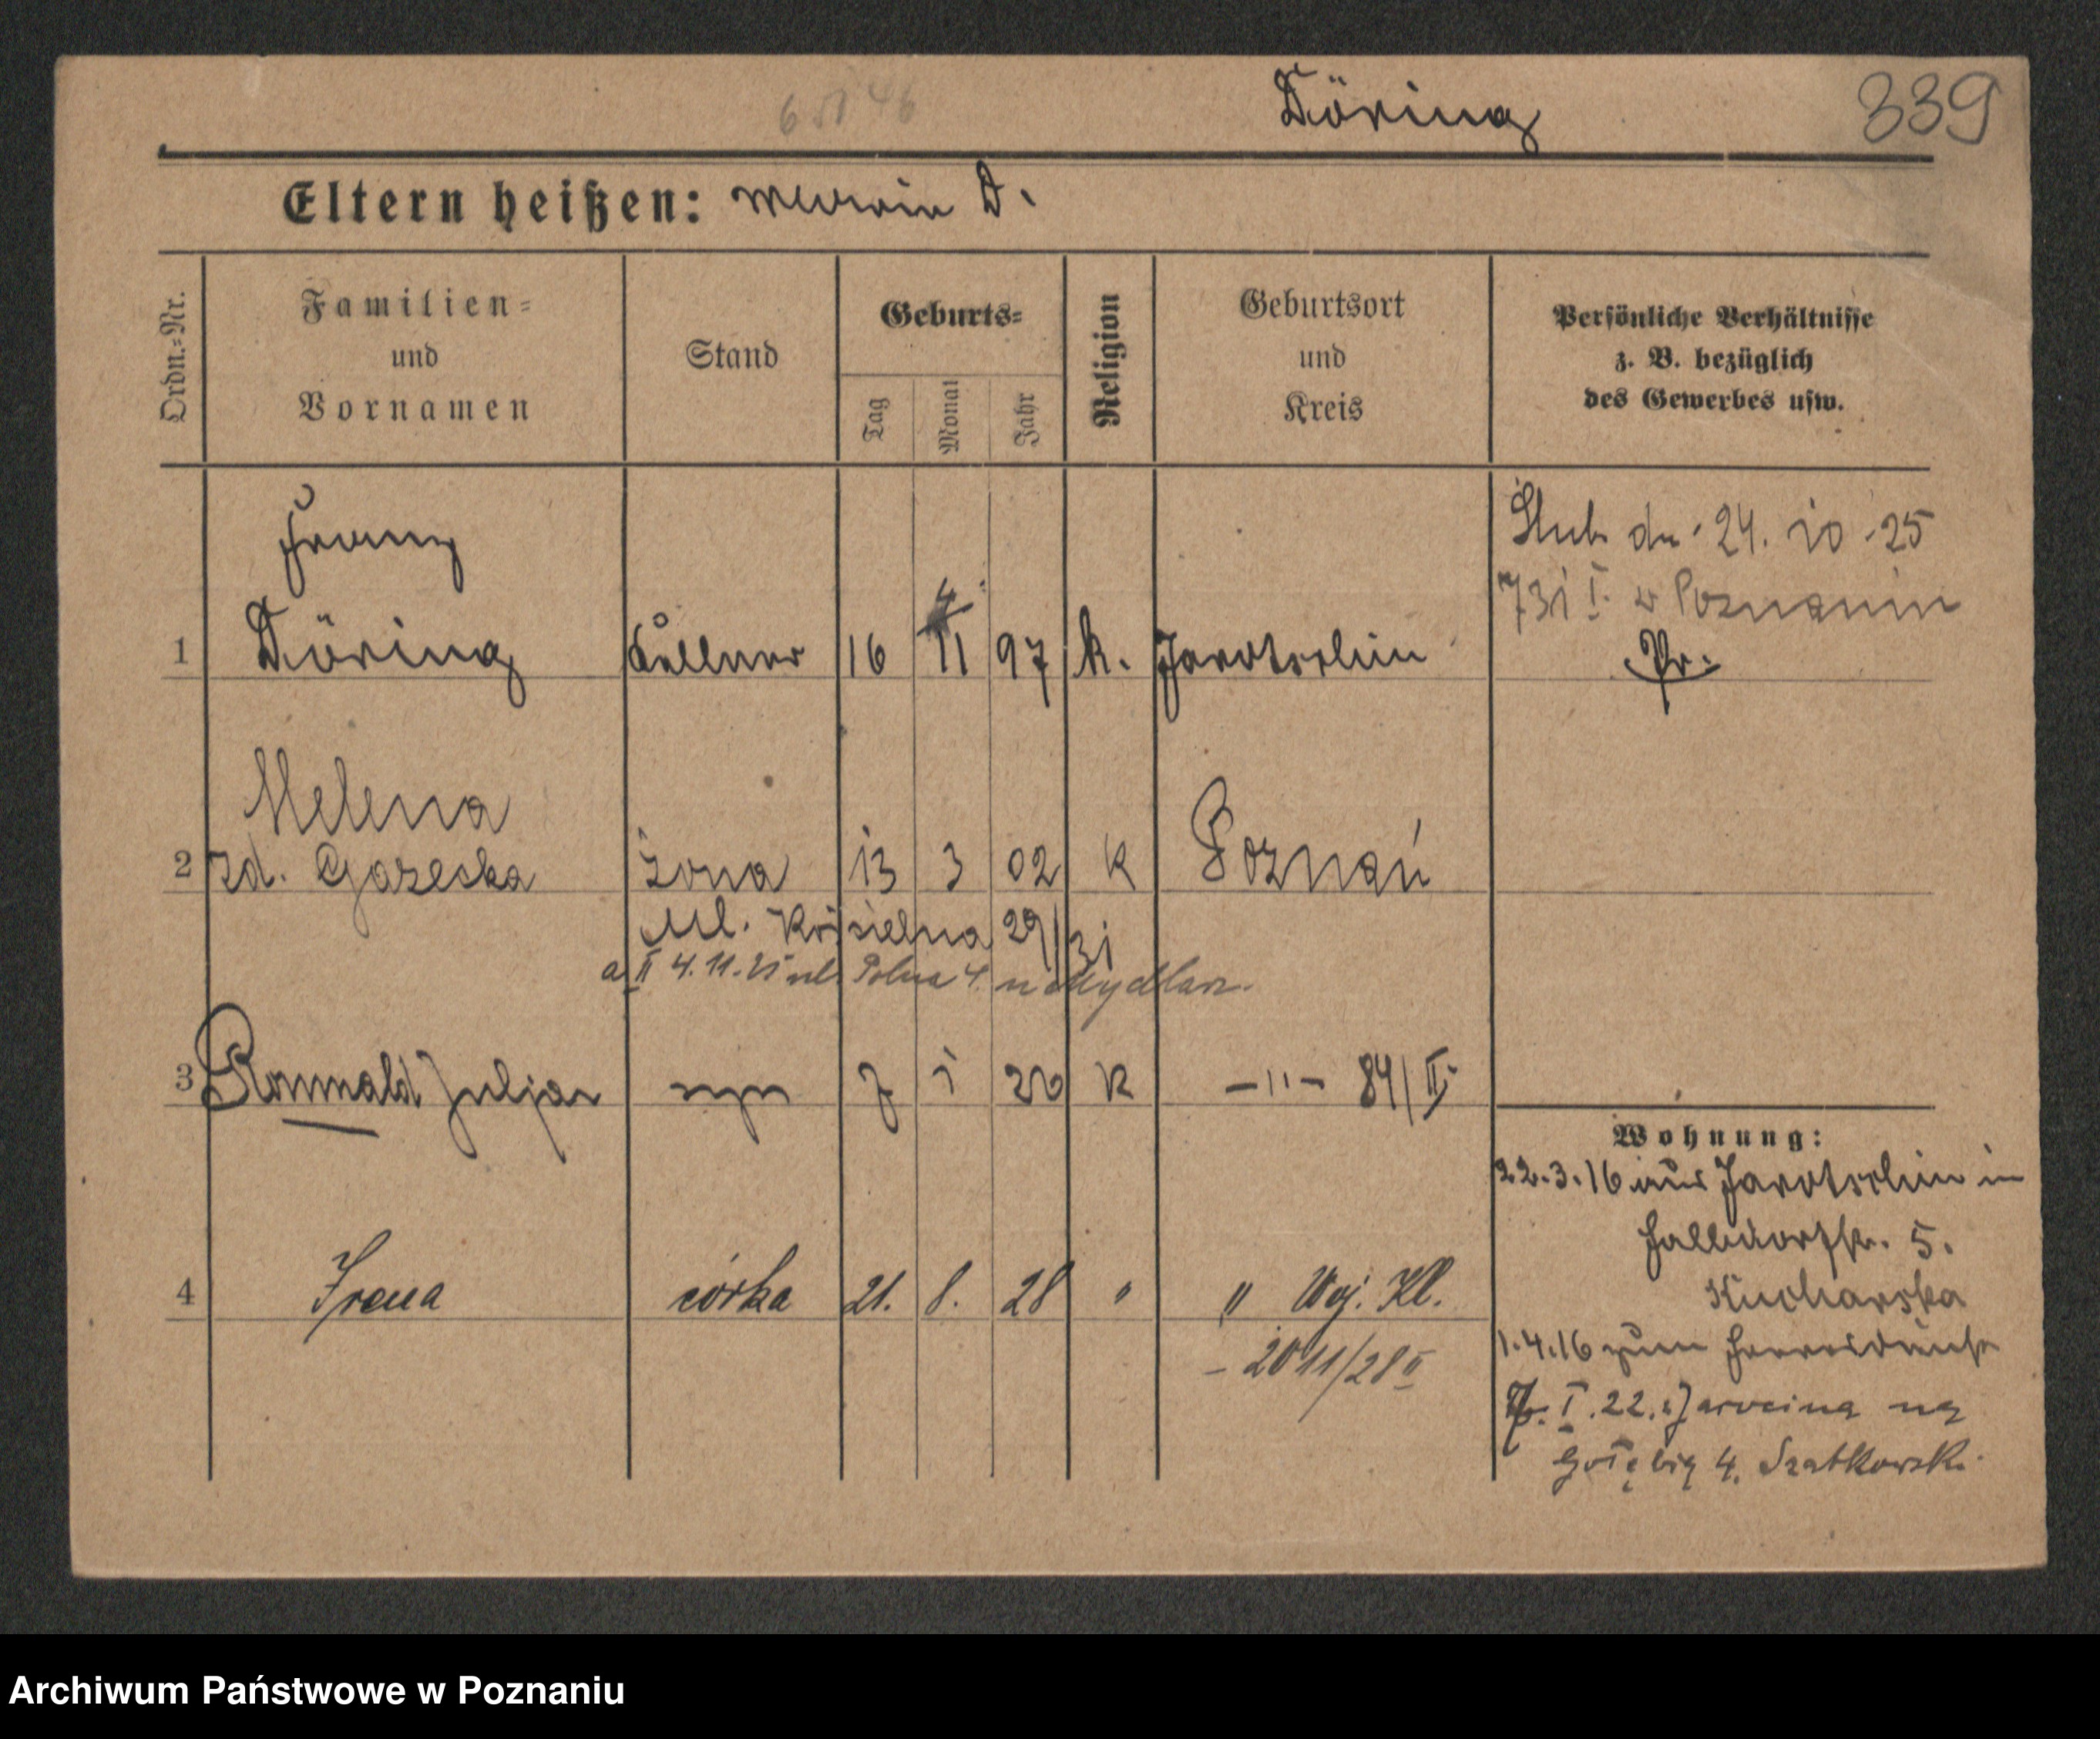 Döring 339
Eltern heißen: Maria D.
Ordn.-Nr.
Familien-
und
Vornamen
Stand
Geburts-
Tag
Monat
Jahr
Religion
Geburtsort
und
Kreis
Persönliche Verhältnisse
z. B. bezüglich
des Gewerbes usw.
Franz
1 Döring Kellner 16 11 97 k. Jarotschin
Ślub dn. 24. 10. 25
731 I. w Poznaniu
Helena
2 zd. Gazecka żona 13 3 02 k Poznań
Ul.
4.11.25 ul. Polna 4.
3 Romuald Juljan syn 7 1 26 k -"- 84/II.
Wohnung:
22.3.16 aus Jarotschin in
5.
Kucharska
4 Irena córka 21. 8. 28 " " Woj. Kl.
- 2011/28 II
1.4.16 zum Heeresdienst
I. 22. z Jarocina na
Gołębią 4. Szatkowsk.
Archiwum Państwowe w Poznaniu